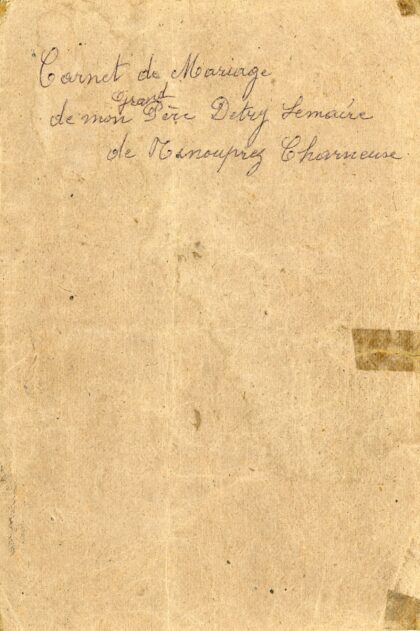 Carnet de Mariage
de mon Grand Père Detry Lemaire
de Renouprez Charneuse